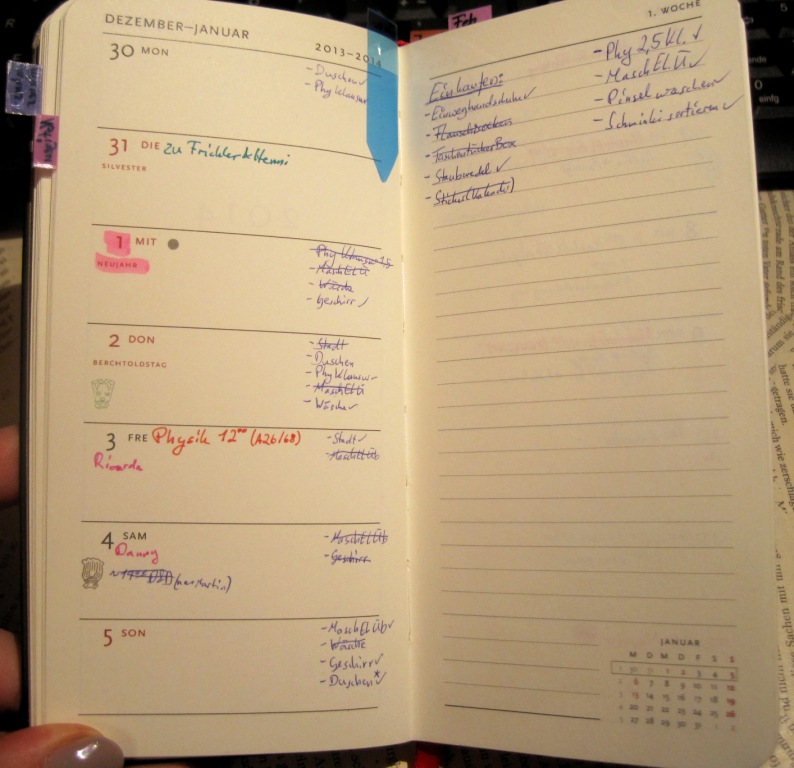 DEZEMBER–JANUAR
2013-2014
30 MON
- Duschen ✓
- Phy Klausur
31 DIE Zu Frickler & Henni
SILVESTER
1 MIT
NEUJAHR
- Phy Klausur
- MaschElÜ
- Wäsche
- Geschirr ✓
2 DON
BERCHTOLDSTAG
- Stadt
- Duschen
- Phy Klausur
- MaschElÜ
- Wäsche ✓
3 FRE Physik 12⁰⁰ (A2b/68)
Ricarda
- Stadt ✓
- MaschElÜb
4 SAM
Danny
- MaschElÜb
- Geschirr
5 SON
- MaschElÜb ✓
- Wäsche
- Geschirr ✓
- Duschen* ✓
1. WOCHE
Feb
Einkaufen:
- Einweghandschuhe ✓
- Flauschsocken
- TaschentücherBox
- Staubwedel ✓
- Sticker (Kalender)
- Phy 2,5 Kl. ✓
- MaschElÜ ✓
- Pinsel waschen ✓
- Schminki sortieren ✓
JANUAR
M D M D F S S
1 30 31 1 2 3 4 5
2 6 7 8 9 10 11 12
3 13 14 15 16 17 18 19
4 20 21 22 23 24 25 26
5 27 28 29 30 31
einfg